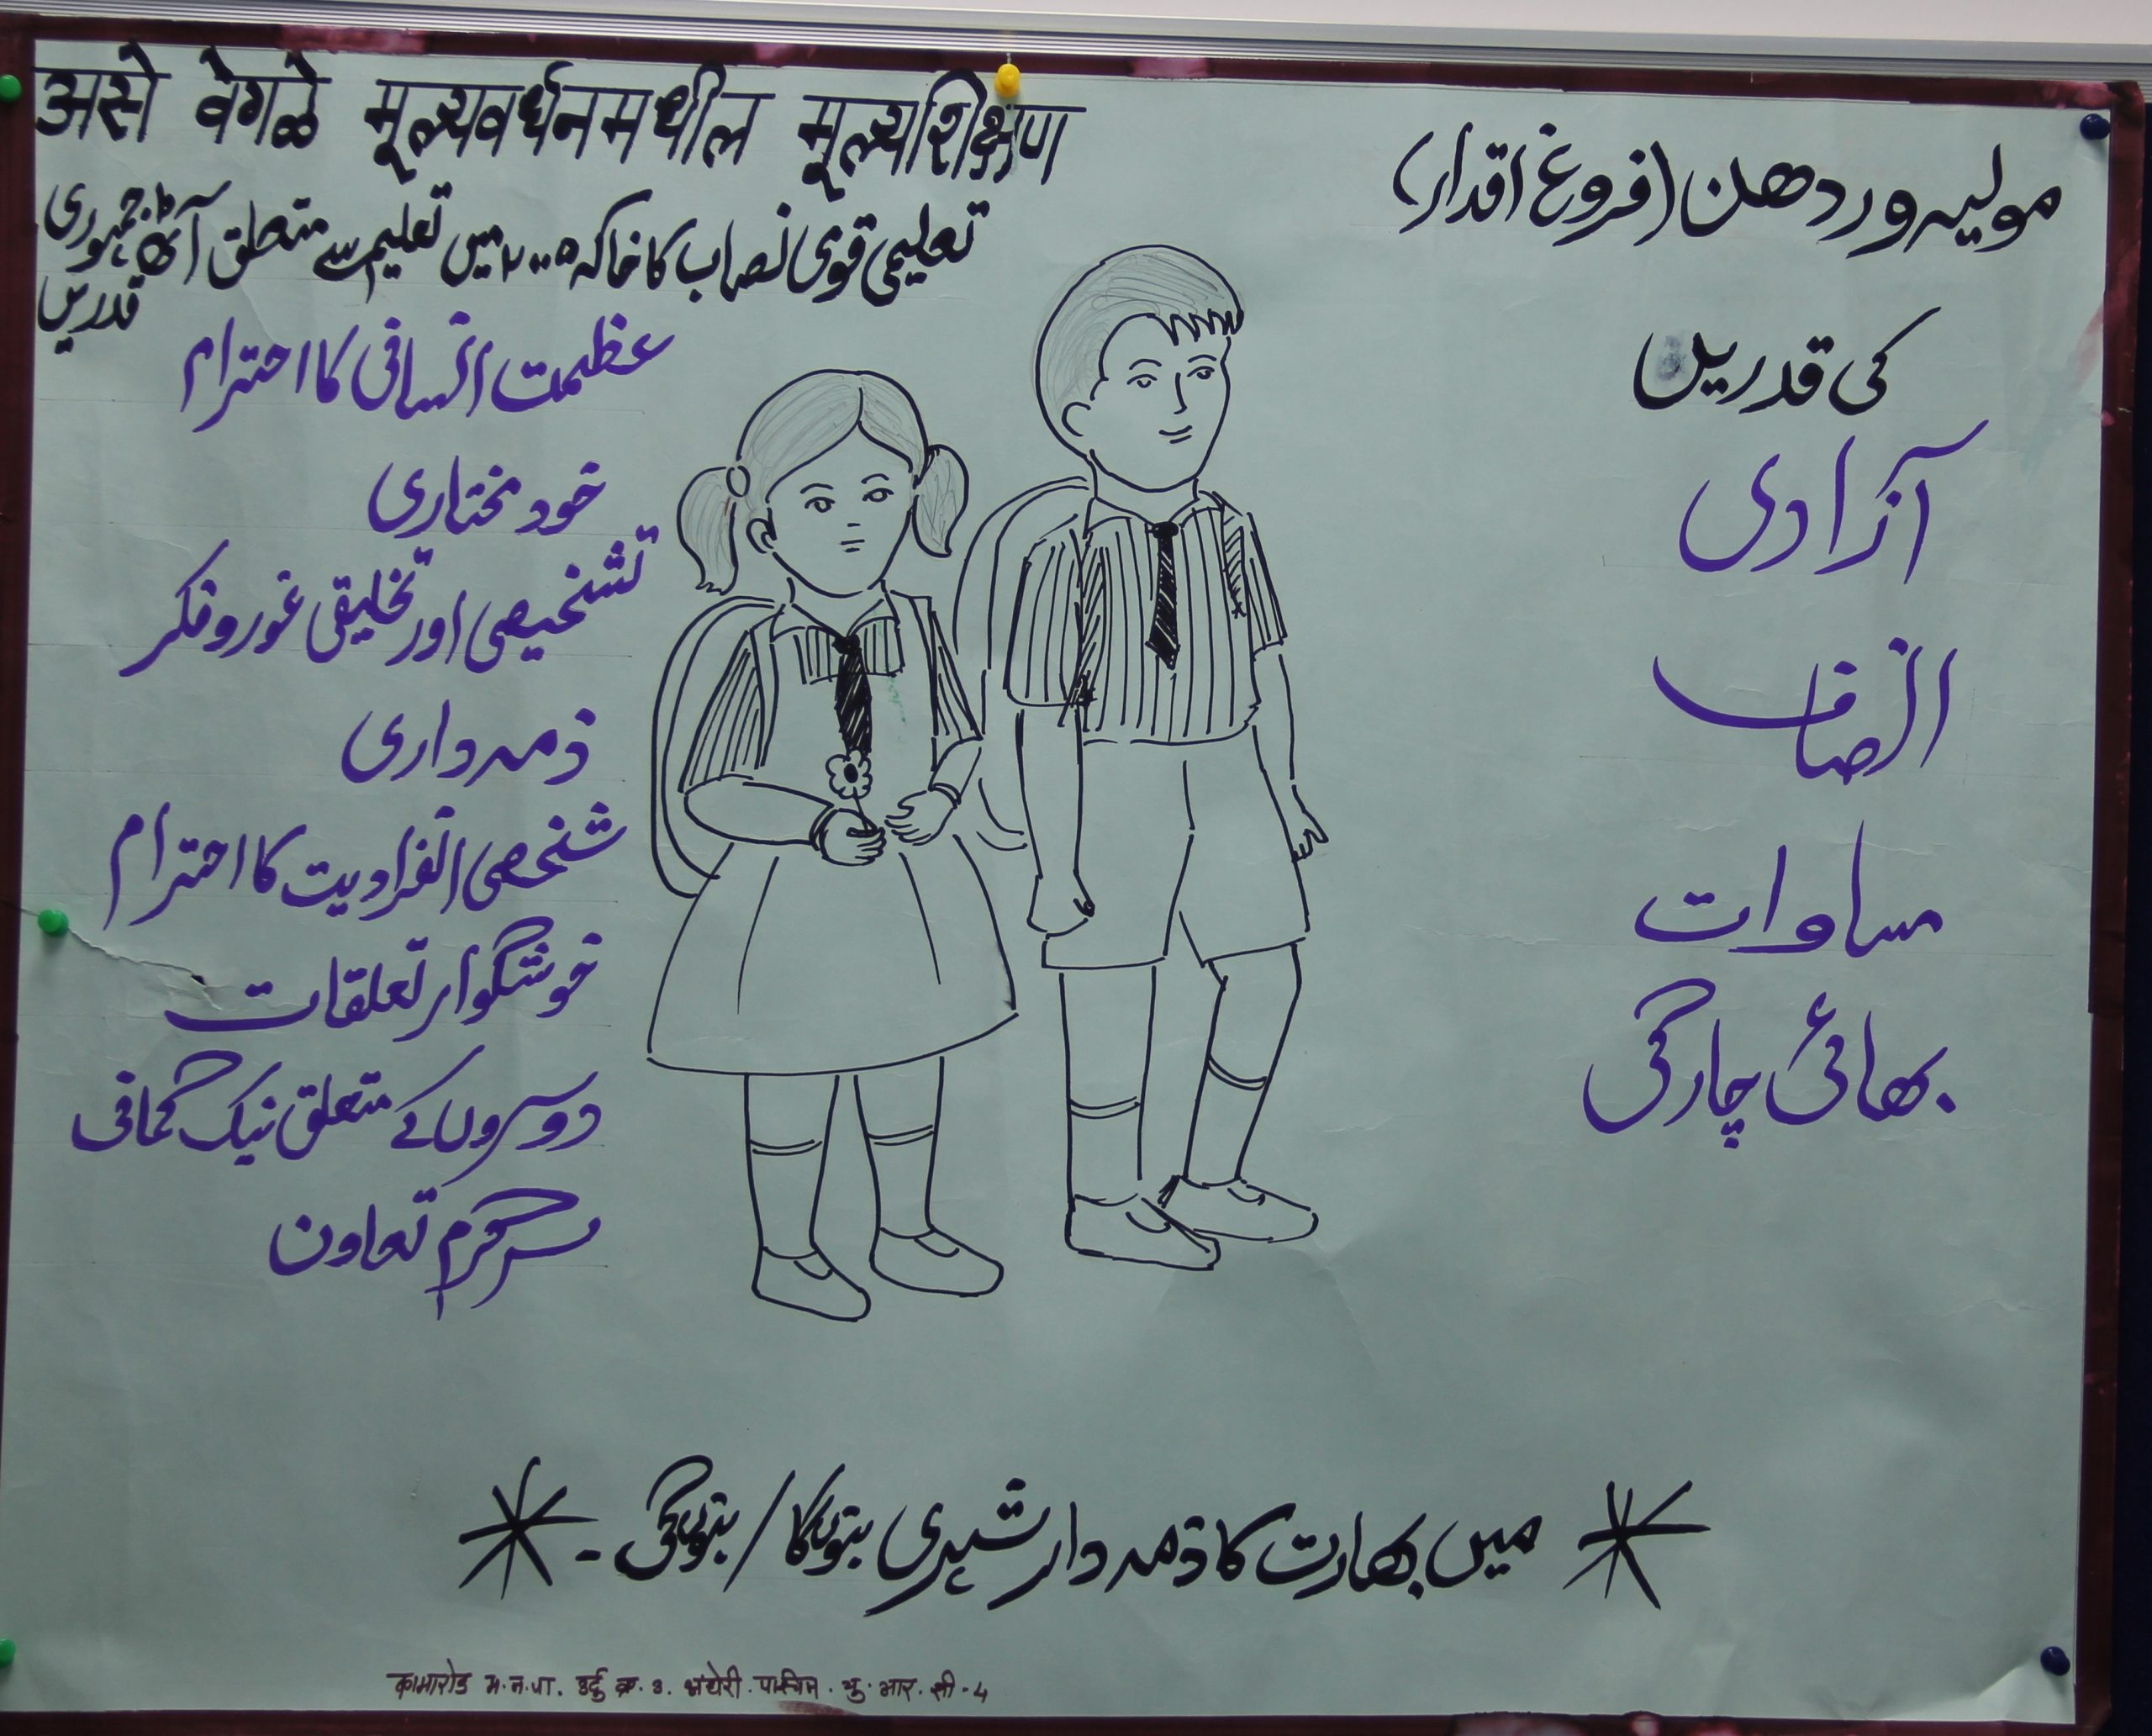 असे वेगळे मूल्यवर्धनमधील मूल्यशिक्षण
تعلیمی قومی نصاب کا خاکہ ۲۰۰۵ میں تعلیم سے متعلق آٹھ جمہوری
قدریں
عظمت انسانی کا احترام
خود مختاری
تشخیصی اور تخلیقی غور و فکر
ذمہ داری
شخصی انفرادیت کا احترام
خوشگوار تعلقات
دوسروں کے متعلق نیک گمانی
سرگرم تعاون
مولیہ وردھن (فروغ اقدار)
کی قدریں
آزادی
انصاف
مساوات
بھائی چارگی
میں بھارت کا ذمہ دار شہری بنوں گا / بنوں گی -
कामारोड म.न.पा. उर्दु क्र. अंधेरी. पश्चिम. यु. आर. सी - 4